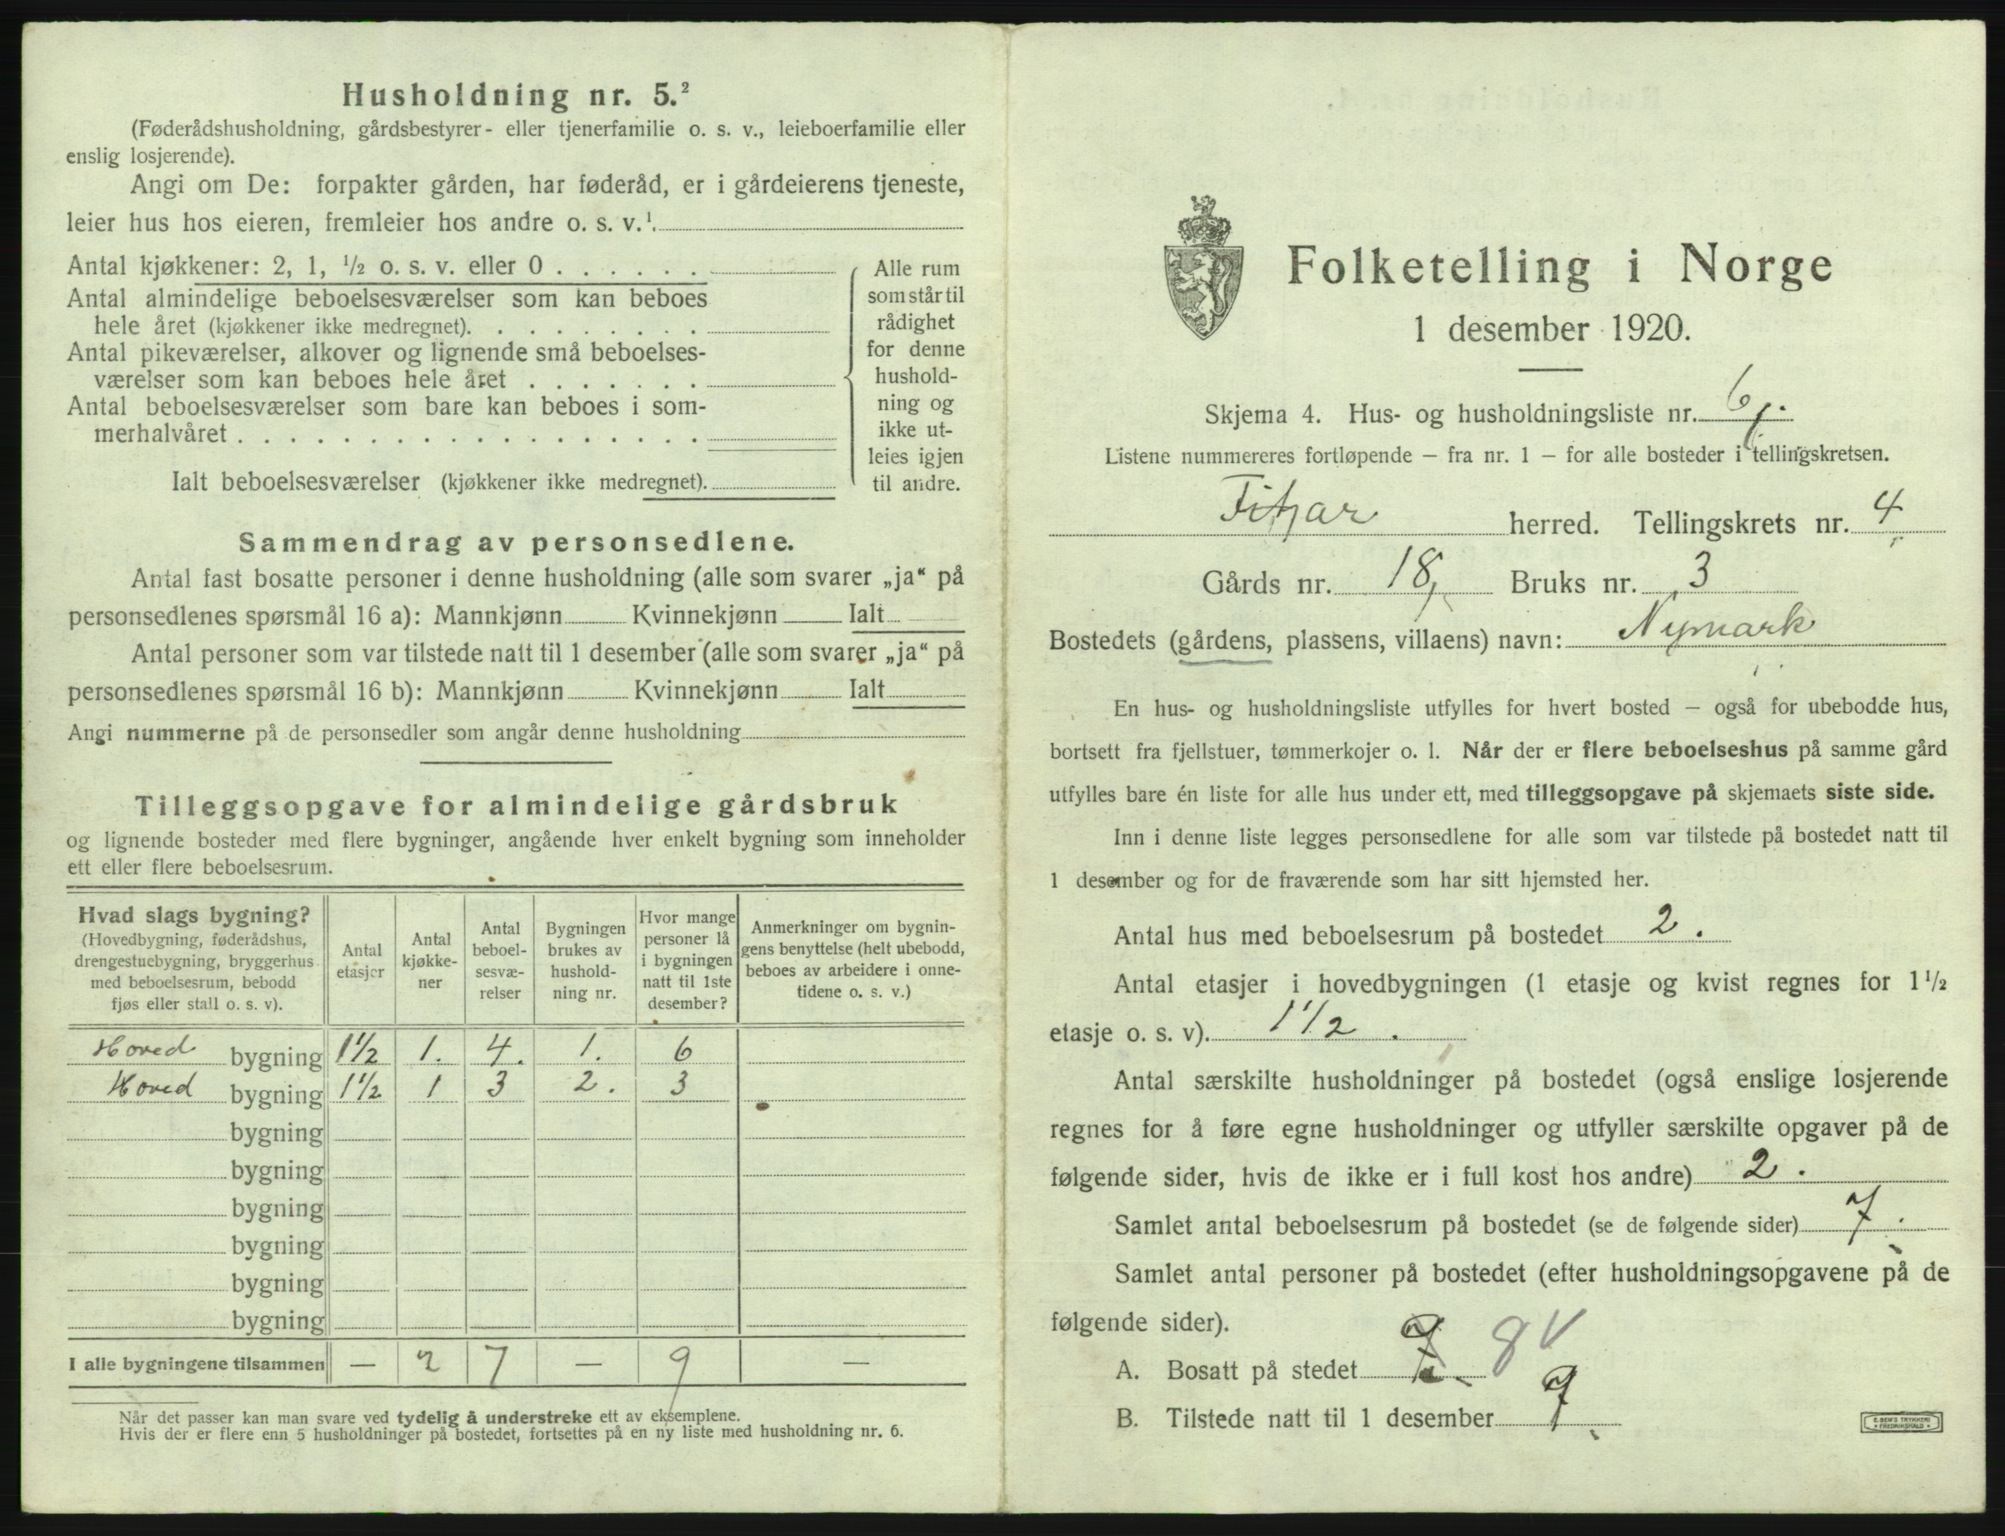 Husholdning nr. 5.²
(Føderådshusholdning, gårdsbestyrer- eller tjenerfamilie o. s. v., leieboerfamilie eller
enslig losjerende).
Angi om De: forpakter gården, har føderåd, er i gårdeierens tjeneste,
leier hus hos eieren, fremleier hos andre o. s. v.¹.
Antal kjøkkener: 2, 1, ½ o. s. v. eller 0 . . . . . .
Antal almindelige beboelsesværelser som kan beboes
hele året (kjøkkener ikke medregnet). . . . . . . . .
Antal pikeværelser, alkover og lignende små beboelses-
værelser som kan beboes hele året . . . . . . .
Antal beboelsesværelser som bare kan beboes i som-
merhalvåret . . . . . . . . . . . . . . . . . .
Ialt beboelsesværelser (kjøkkener ikke medregnet).
Alle rum
som står til
rådighet
for denne
hushold-
ning og
ikke ut-
leies igjen
til andre.
Sammendrag av personsedlene.
Antal fast bosatte personer i denne husholdning (alle som svarer „ja“ på
personsedlenes spørsmål 16 a): Mannkjønn Kvinnekjønn Ialt
Antal personer som var tilstede natt til 1 desember (alle som svarer „ja“ på
personsedlenes spørsmål 16 b): Mannkjønn Kvinnekjønn Ialt
Angi nummerne på de personsedler som angår denne husholdning
Tilleggsopgave for almindelige gårdsbruk
og lignende bosteder med flere bygninger, angående hver enkelt bygning som inneholder
ett eller flere beboelsesrum.
Hvad slags bygning?
(Hovedbygning, føderådshus,
drengestuebygning, bryggerhus
med beboelsesrum, bebodd
fjøs eller stall o. s. v).
Antal
etasjer
Antal
kjøkke-
ner
Antal
beboel-
sesvæ-
relser
Bygningen
brukes av
hushold-
ning nr.
Hvor mange
personer lå
i bygningen
natt til 1ste
desember?
Anmerkninger om bygnin-
gens benyttelse (helt ubebodd,
beboes av arbeidere i onne-
tidene o. s. v.)
Hoved bygning 1½ 1. 4. 1. 6
Hoved bygning 1½ 1 3 2. 3
bygning
bygning
bygning
bygning
bygning
bygning
I alle bygningene tilsammen — 2 7 — 9 —
Når det passer kan man svare ved tydelig å understreke ett av eksemplene.
Hvis der er flere enn 5 husholdninger på bostedet, fortsettes på en ny liste med husholdning nr. 6.
Folketelling i Norge
1 desember 1920.
Skjema 4. Hus- og husholdningsliste nr. 6
Listene nummereres fortløpende — fra nr. 1 — for alle bosteder i tellingskretsen.
Fitjar herred. Tellingskrets nr. 4
Gårds nr. 18, Bruks nr. 3
Bostedets (gårdens, plassens, villaens) navn: Nymark
En hus- og husholdningsliste utfylles for hvert bosted — også for ubebodde hus,
bortsett fra fjellstuer, tømmerkojer o. l. Når der er flere beboelseshus på samme gård
utfylles bare én liste for alle hus under ett, med tilleggsopgave på skjemaets siste side.
Inn i denne liste legges personsedlene for alle som var tilstede på bostedet natt til
1 desember og for de fraværende som har sitt hjemsted her.
Antal hus med beboelsesrum på bostedet 2.
Antal etasjer i hovedbygningen (1 etasje og kvist regnes for 1½
etasje o. s. v). 1½.
Antal særskilte husholdninger på bostedet (også enslige losjerende
regnes for å føre egne husholdninger og utfyller særskilte opgaver på de
følgende sider, hvis de ikke er i full kost hos andre) 2.
Samlet antal beboelsesrum på bostedet (se de følgende sider) 7.
Samlet antal personer på bostedet (efter husholdningsopgavene på de
følgende sider).
A. Bosatt på stedet 8 V
B. Tilstede natt til 1 desember 9
E. SEM'S TRYKKERI
FREDRIKSHALD